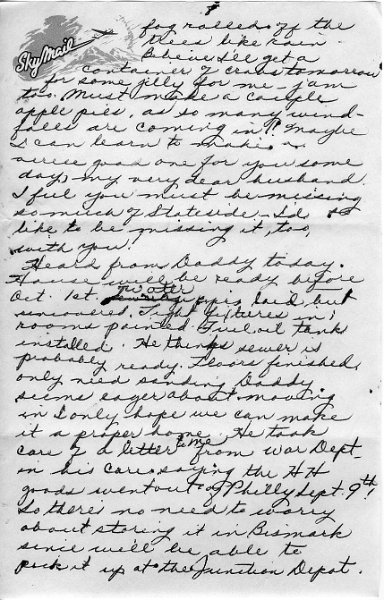 Sky Mail
fog rolled off the
trees like rain.
Believe I'll get a
container of crabs tomorrow
for some jelly for me - jam
too. Must make a couple
apple pies, as so many wind-
falls are coming in!! Maybe
I can learn to make a
nice good one for you some
day, my very dear husband.
I feel you must be missing
so much of Stateside - I'd
like to be missing it, too,
with you!
Heard from Daddy today.
House will be ready before
Oct. 1st. Water pipe laid but
uncovered. Light fixtures in;
rooms painted. Fuel oil tank
installed. He thinks sewer is
probably ready. Floors finished,
only need sanding. Daddy
seems eager about moving
in & only hope we can make
it a proper home. He took
care of a letter to me from War Dept.
in his care saying the H H
goods went out of Philly Sept. 9th!
So there's no need to worry
about storing it in Bismark
since we'll be able to
pick it up at the Junction Depot.